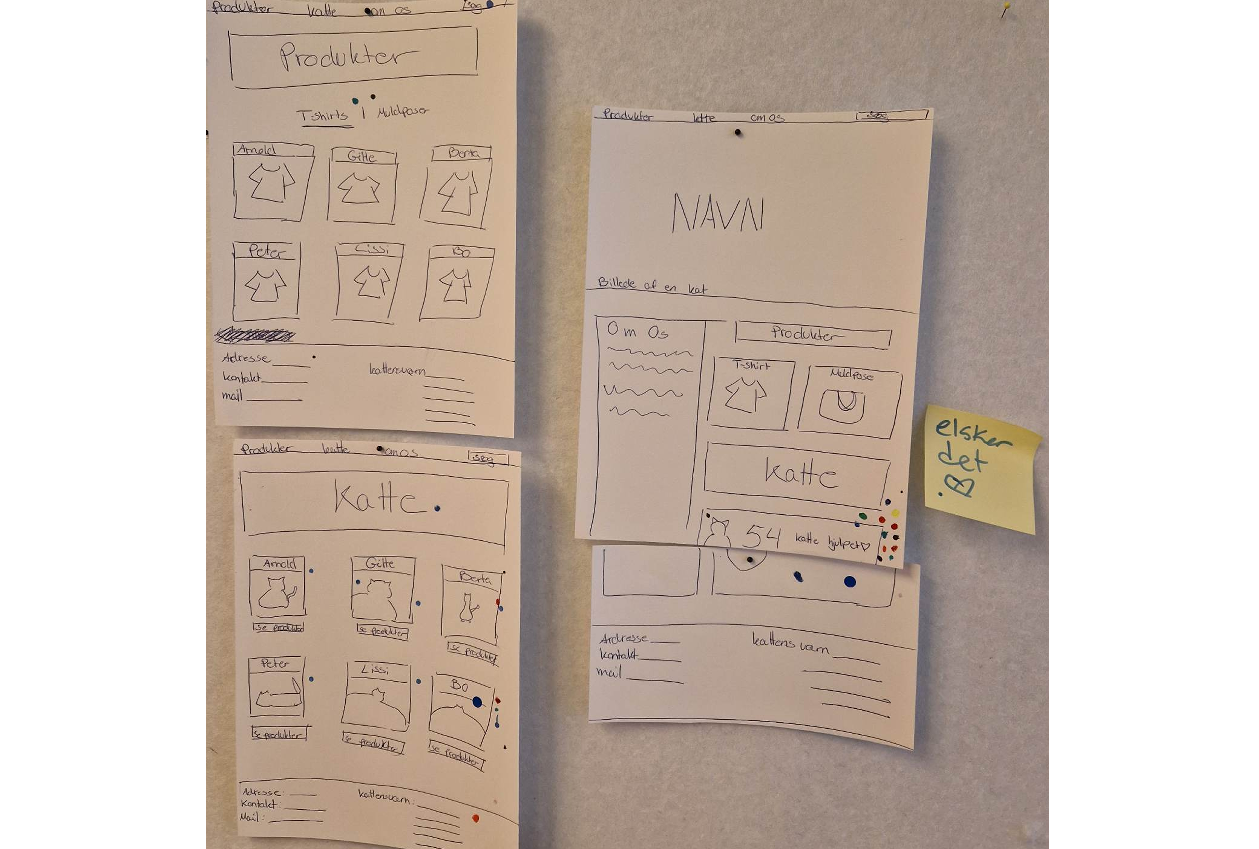 Produkter katte om os søg
Produkter
T-shirts | Muldposer
Arnold Gitte Berta
Peter Lissi Bo
Adresse
kontakt
mail
kattensværn
Produkter katte om os søg
Katte
Arnold Gitte Berta
se produkter se produkter se produkter
Peter Lissi Bo
se produkter se produkter se produkter
Adresse:
Kontakt:
Mail:
kattensværn:
Produkter katte om os søg
NAVN
Billede af en kat
Om Os
Produkter
T-shirt Muldpose
katte
54 katte hjulpet
Adresse
kontakt
mail
kattens værn
elsker
det